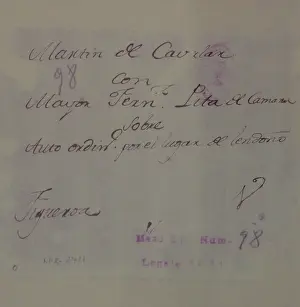 Martin de Caurlar
98 con
Mayor Fern.ᶻ Pita de Camara
Sobre
Auto ordin.º por el lugar de Lendoiro
Figueroa
V
Num. 98
Lega